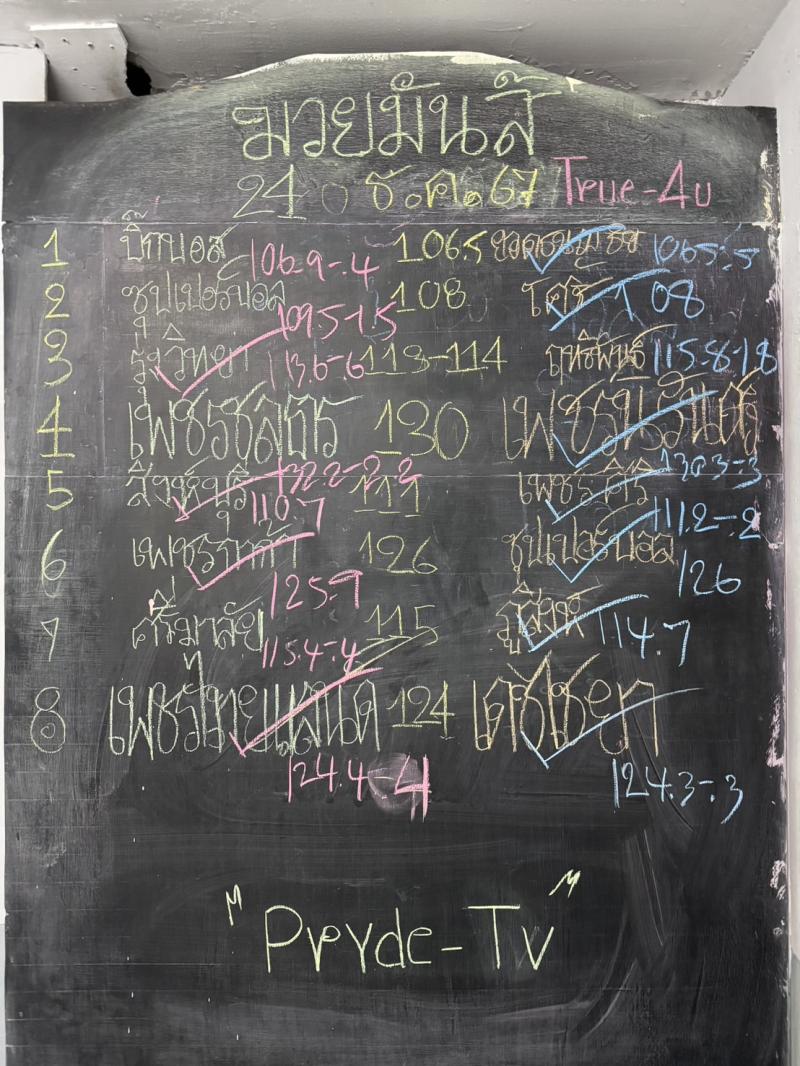 มวยมันส์
24 ธ.ค.67 True-4U
1 บิ๊กบอส 106.9-.4 106.5 106.5-.5
2 ซุปเปอร์บอล 109.5-1.5 108 โคริ 108
3 รุ่งวิทยา 113.6-.6 113-114 ฤทธิพันธ์ 115.8-1.8
4 เพชรชลธร 130 เพชรนรินทร์
5 สิงห์หนุ่ม 132.2-2.2 111 เพชรศิริ 130.3-.3
110.7
6 เพชรภูผา 126 ซุปเปอร์บอล 111.2-.2
125.9 126
7 ศรีมาลัย 115.4-.4 115 ภูสิงห์ 114.7
8 เพชรไทยแลนด์ 124 เตชิเชษฐ
124.4-.4 124.3-.3
"Pryde-Tv"